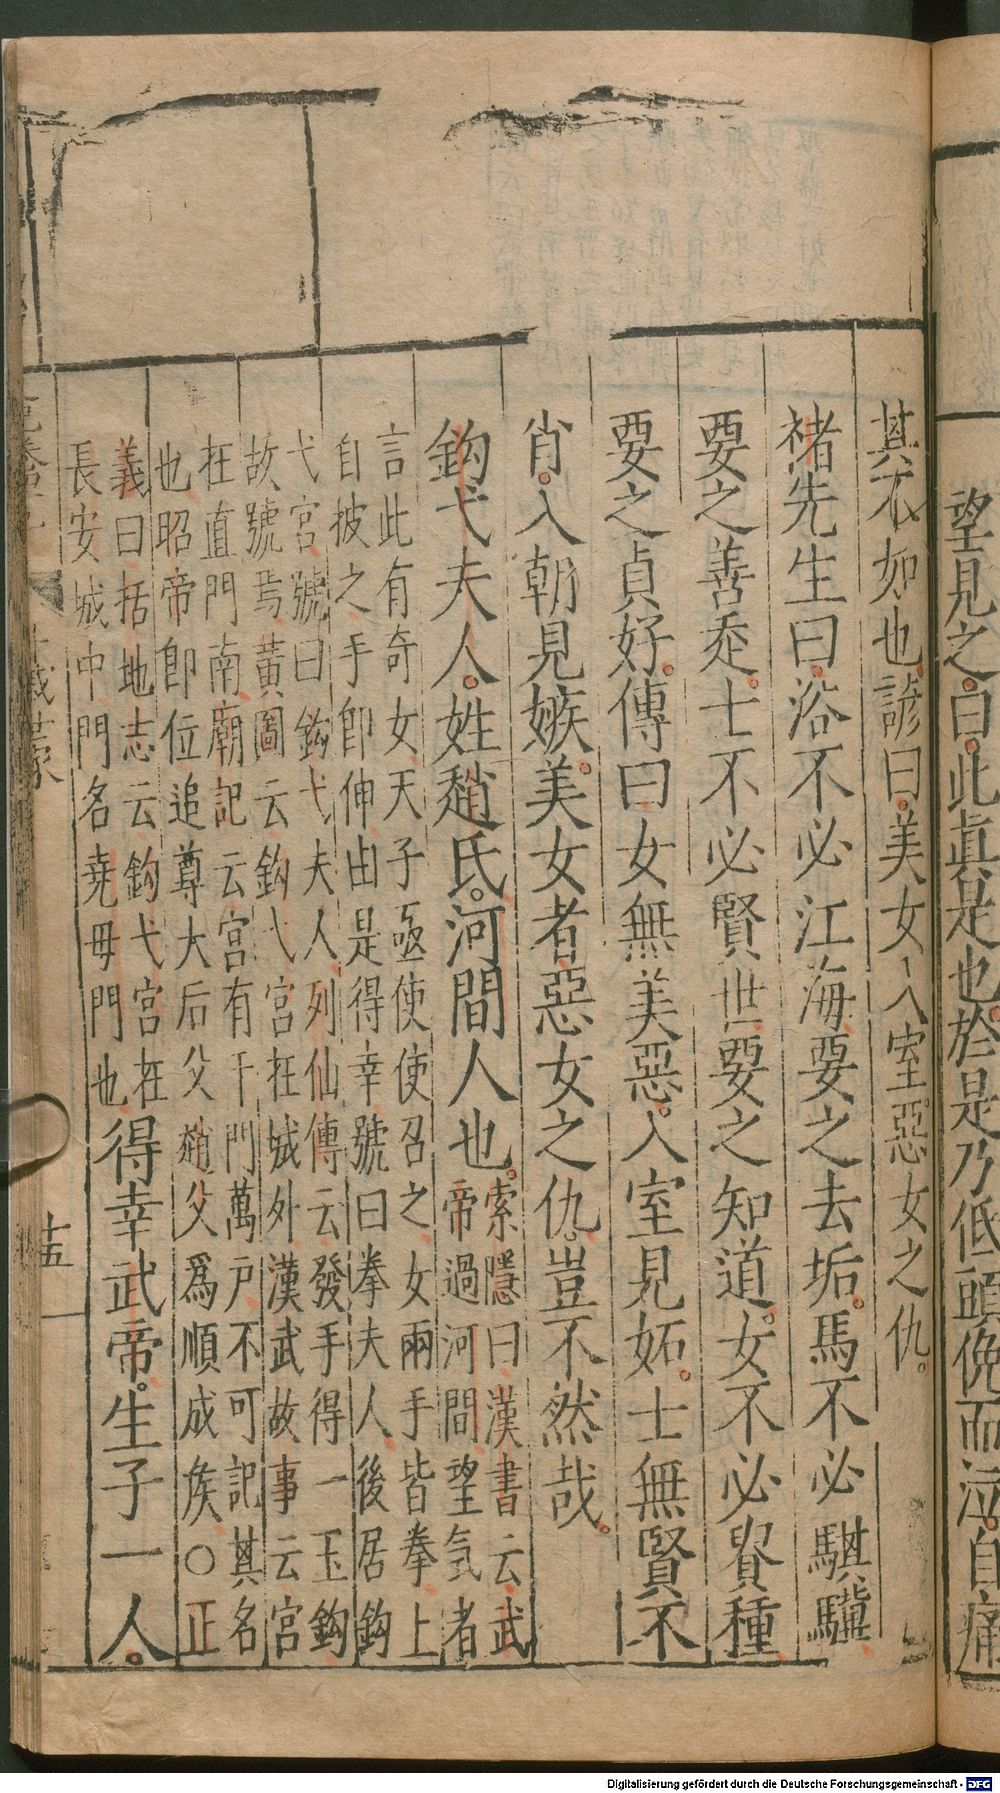 望見之。白。此真是也。於是乃低頭俛而泣。自痛
其不如也。諺曰。美女入室。惡女之仇。
褚先生曰。浴不必江海。要之去垢。馬不必騏驥。
要之善走。士不必賢世。要之知道。女不必貴種。
要之貞好。傳曰女無美惡。入室見妬。士無賢不
肖。入朝見嫉。美女者惡女之仇。豈不然哉。
鈎弋夫人。姓趙氏。河間人也。索隱曰漢書云武
帝過河間望気者
言此有奇女天子亟使使召之女兩手皆拳上
自披之手即伸由是得幸號曰拳夫人後居鈎
弋宮號曰鈎弋夫人列仙傳云發手得一玉鈎
故號焉黃圖云鈎弋宮在城外漢武故事云宮
在直門南廟記云宮有千門萬戶不可記其名
也昭帝即位追尊大后父趙父爲順成侯○正
義曰括地志云鈎弋宮在
長安城中門名堯母門也
得幸武帝。生子一人。
十五
Digitalisierung gefördert durch die Deutsche Forschungsgemeinschaft - DFG